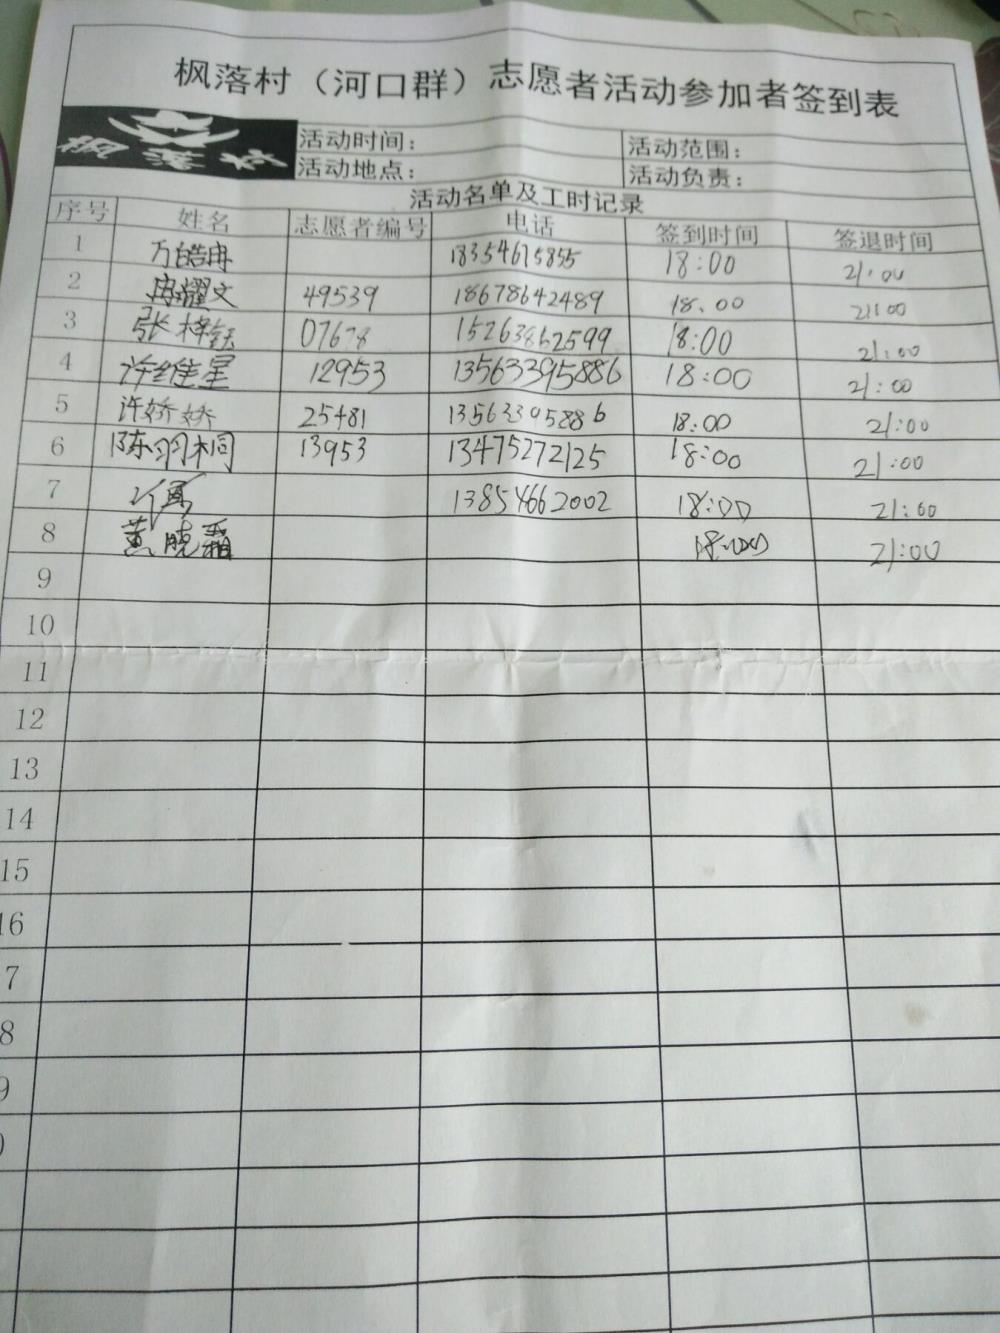 枫落村（河口群）志愿者活动参加者签到表
枫落村
活动时间： 活动范围：
活动地点： 活动负责：
活动名单及工时记录
序号 姓名 志愿者编号 电话 签到时间 签退时间
1 万皓冉 18354615855 18:00 21:00
2 冉耀文 49539 18678642489 18:00 21:00
3 张梓钰 07678 15263862599 18:00 21:00
4 许维星 12953 13563395886 18:00 21:00
5 许娇娇 25481 13563395886 18:00 21:00
6 陈羽桐 13953 13475272125 18:00 21:00
7 13854662002 18:00 21:00
8 黄晓霜 18:00 21:00
9
10
11
12
13
14
15
16
7
8
9